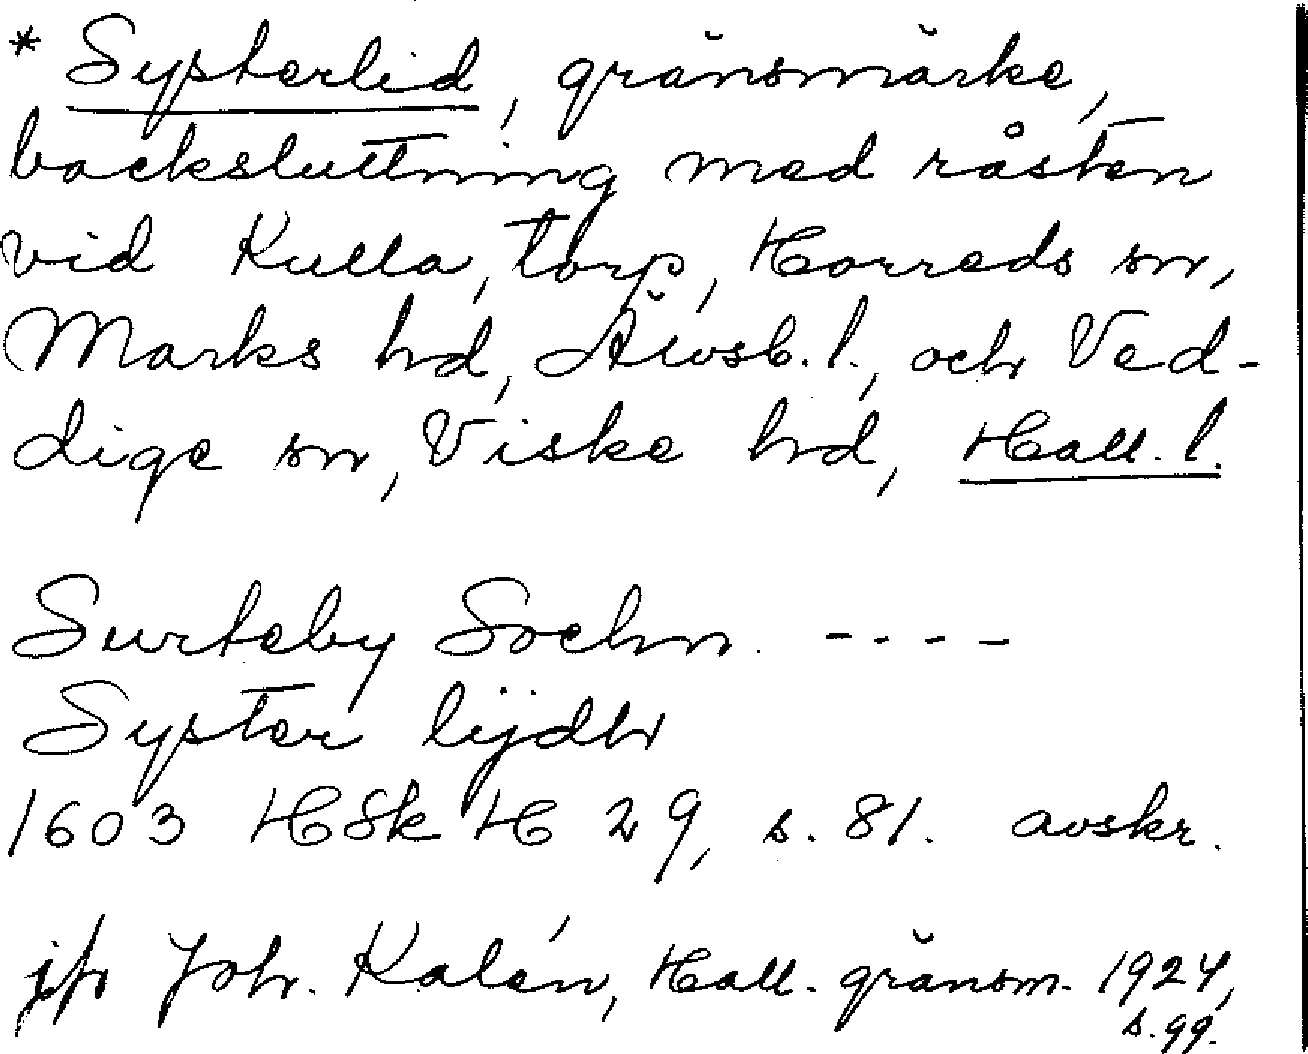 * Systerlid, gränsmärke,
backsluttning med råsten
vid Kulla, torp, Horreds sn,
Marks hd, Älvsb. l., och Ved-
dige sn, Viske hd, Hall. l.
Surteby Sochn. - - - -
Syster lijdh
1603 HSk H 29, s. 81. avskr.
jfr Joh. Kalén, Hall. gränsm. 1924,
s. 99.